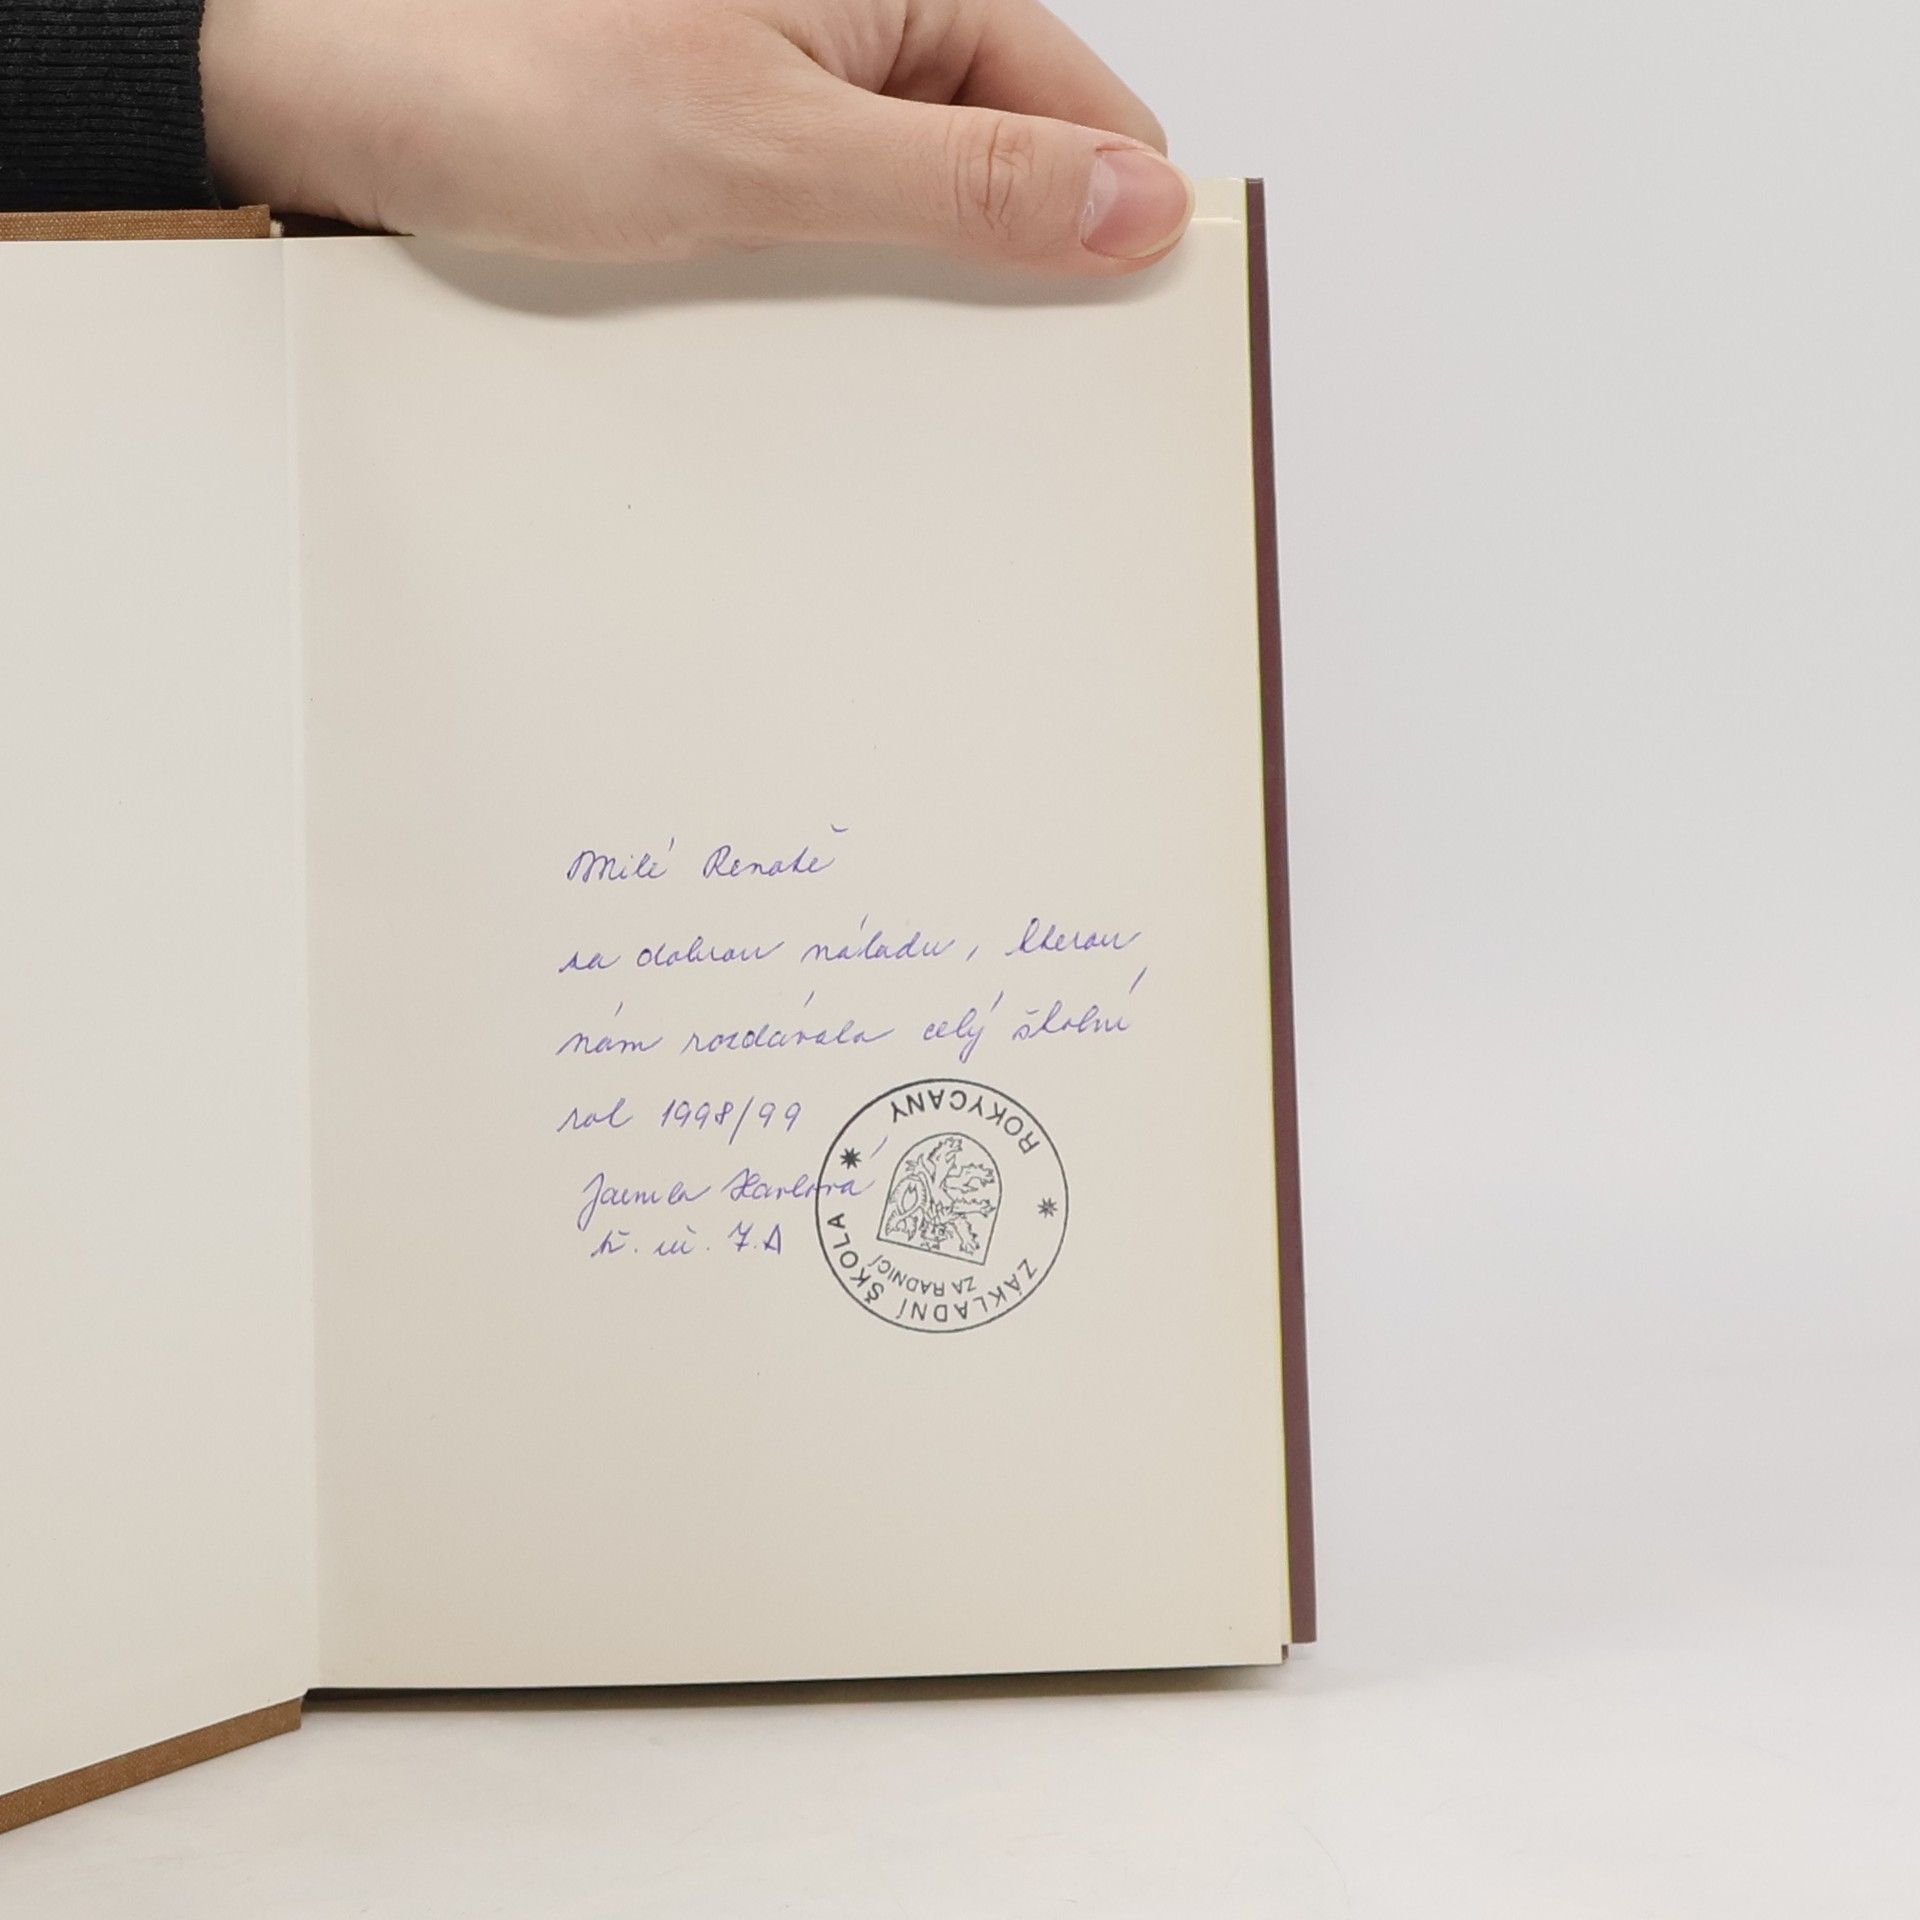 Milé Renatě
za dobrou náladu, kterou
nám rozdávala celý školní
rok 1998/99
Jarmila
tř. uč. 7.A
ZÁKLADNÍ ŠKOLA
ROKYCANY
ZA RADNICÍ